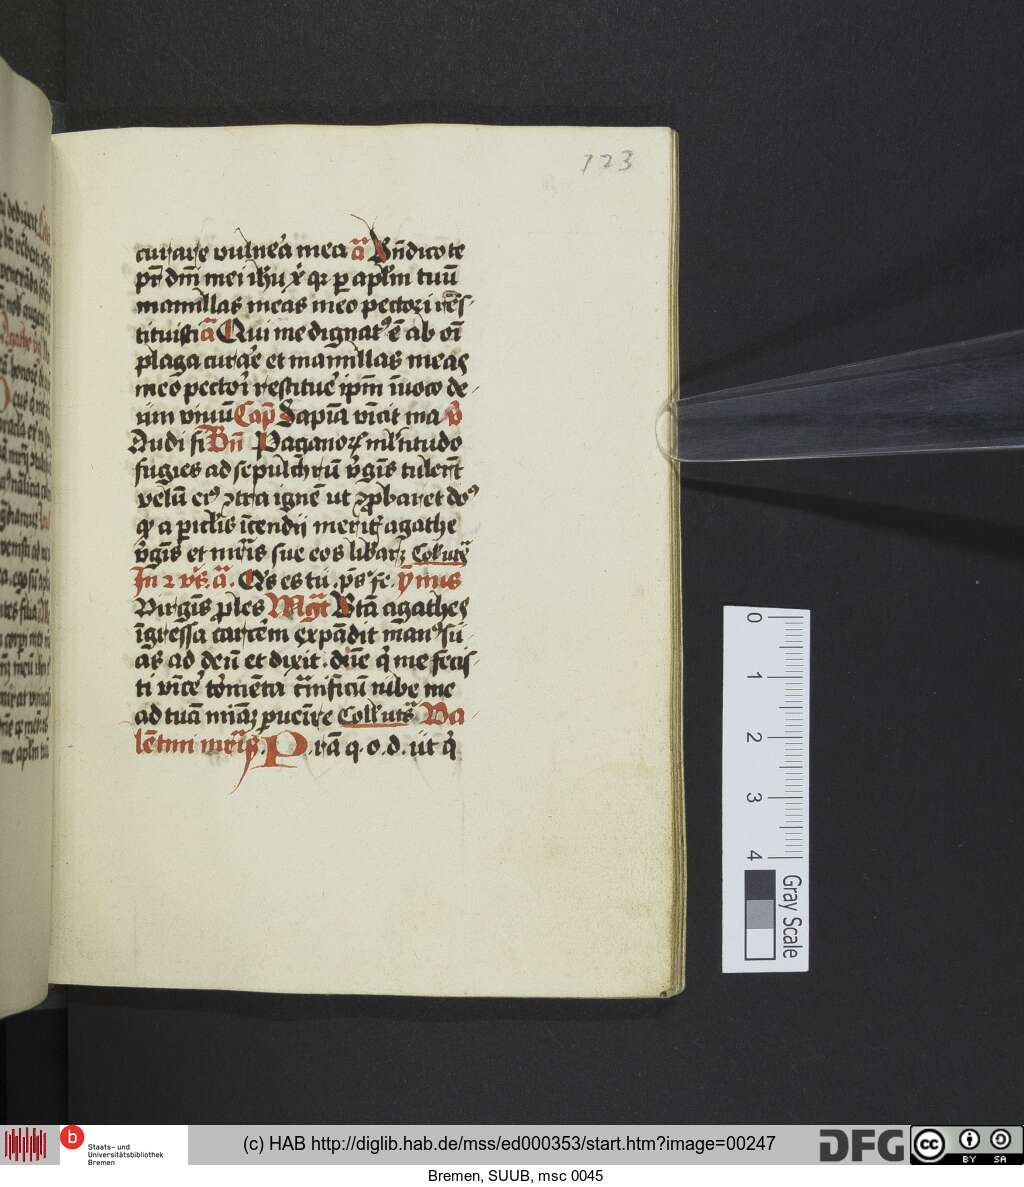 123
curare vulnera mea a̅ Bn̄dico te
pr̄ dn̄i mei ihu xp̄i qr ꝑ apl̄m tuū
mamillas meas meo pectori res-
tituisti a̅ Qui me dignatꝰ ē ab oı̄
plaga curare et mamillas meas
meo pectori restitue̓ ip̄m īuoco de-
um viuū Cap̄ Sapīa vīcit ma v̄
Audi fi Bn̄ Paganoꝝ ml̓titudo
fugies ad sepulchrū v̓gīs tulerūt
velū eiꝰ ꝯtra ignē ut ꝯꝓbaret dn̄s
ꝙ a ꝑiclis īcendij meritꝭ agathe
v̓gīs et mr̄is sue eos libaꝝ Coll̓ utꝰ
In 2 vꝰ a̅. Qs es tu . pꝰs fe. ymus
Virgīs ꝓles Mag̅t Btā agathes
īgressa carcēm expādit manꝰ su
as ad deū et dixit . dn̄e q̓ me fecis-
ti vīce̓ tormēta iube me
ad tuā miāꝫ ꝑuenīre Coll̓ utꝰ Va-
lētini mr̄is. P. rā q. o. d. ut q̓
0
1
2
3
4
Gray Scale
b
Staats- und
Universitätsbibliothek
Bremen
(c) HAB http://diglib.hab.de/mss/ed000353/start.htm?image=00247
DFG
cc
BY SA
Bremen, SUUB, msc 0045